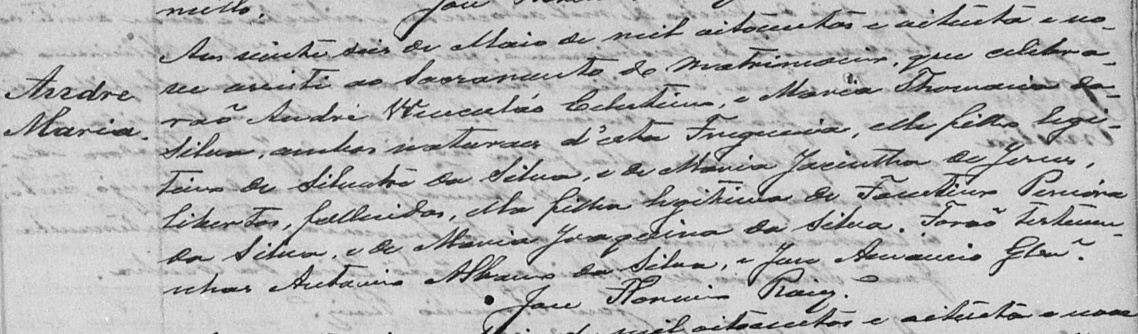 Aos vinte seis de Maio de mil oitocentos e oitenta e no-
ve assisti ao Sacramento do Matrimonio, que celebra-
André
rão André Wenculáo Celestino, e Maria Thomazia da
Maria.
Silva, ambos naturaes d'esta Freguezia, elle filho legi-
timo de Silvestre da Silva, e de Maria Jacintha de Jesus,
libertos, fallecidos, ella filha legitima de Faustino Pereira
da Silva, e de Maria Joaquina da Silva. Forão testemu-
nhas Antonio da Silva, e José Amancio
José
de mil oitocentos e oitenta e nove